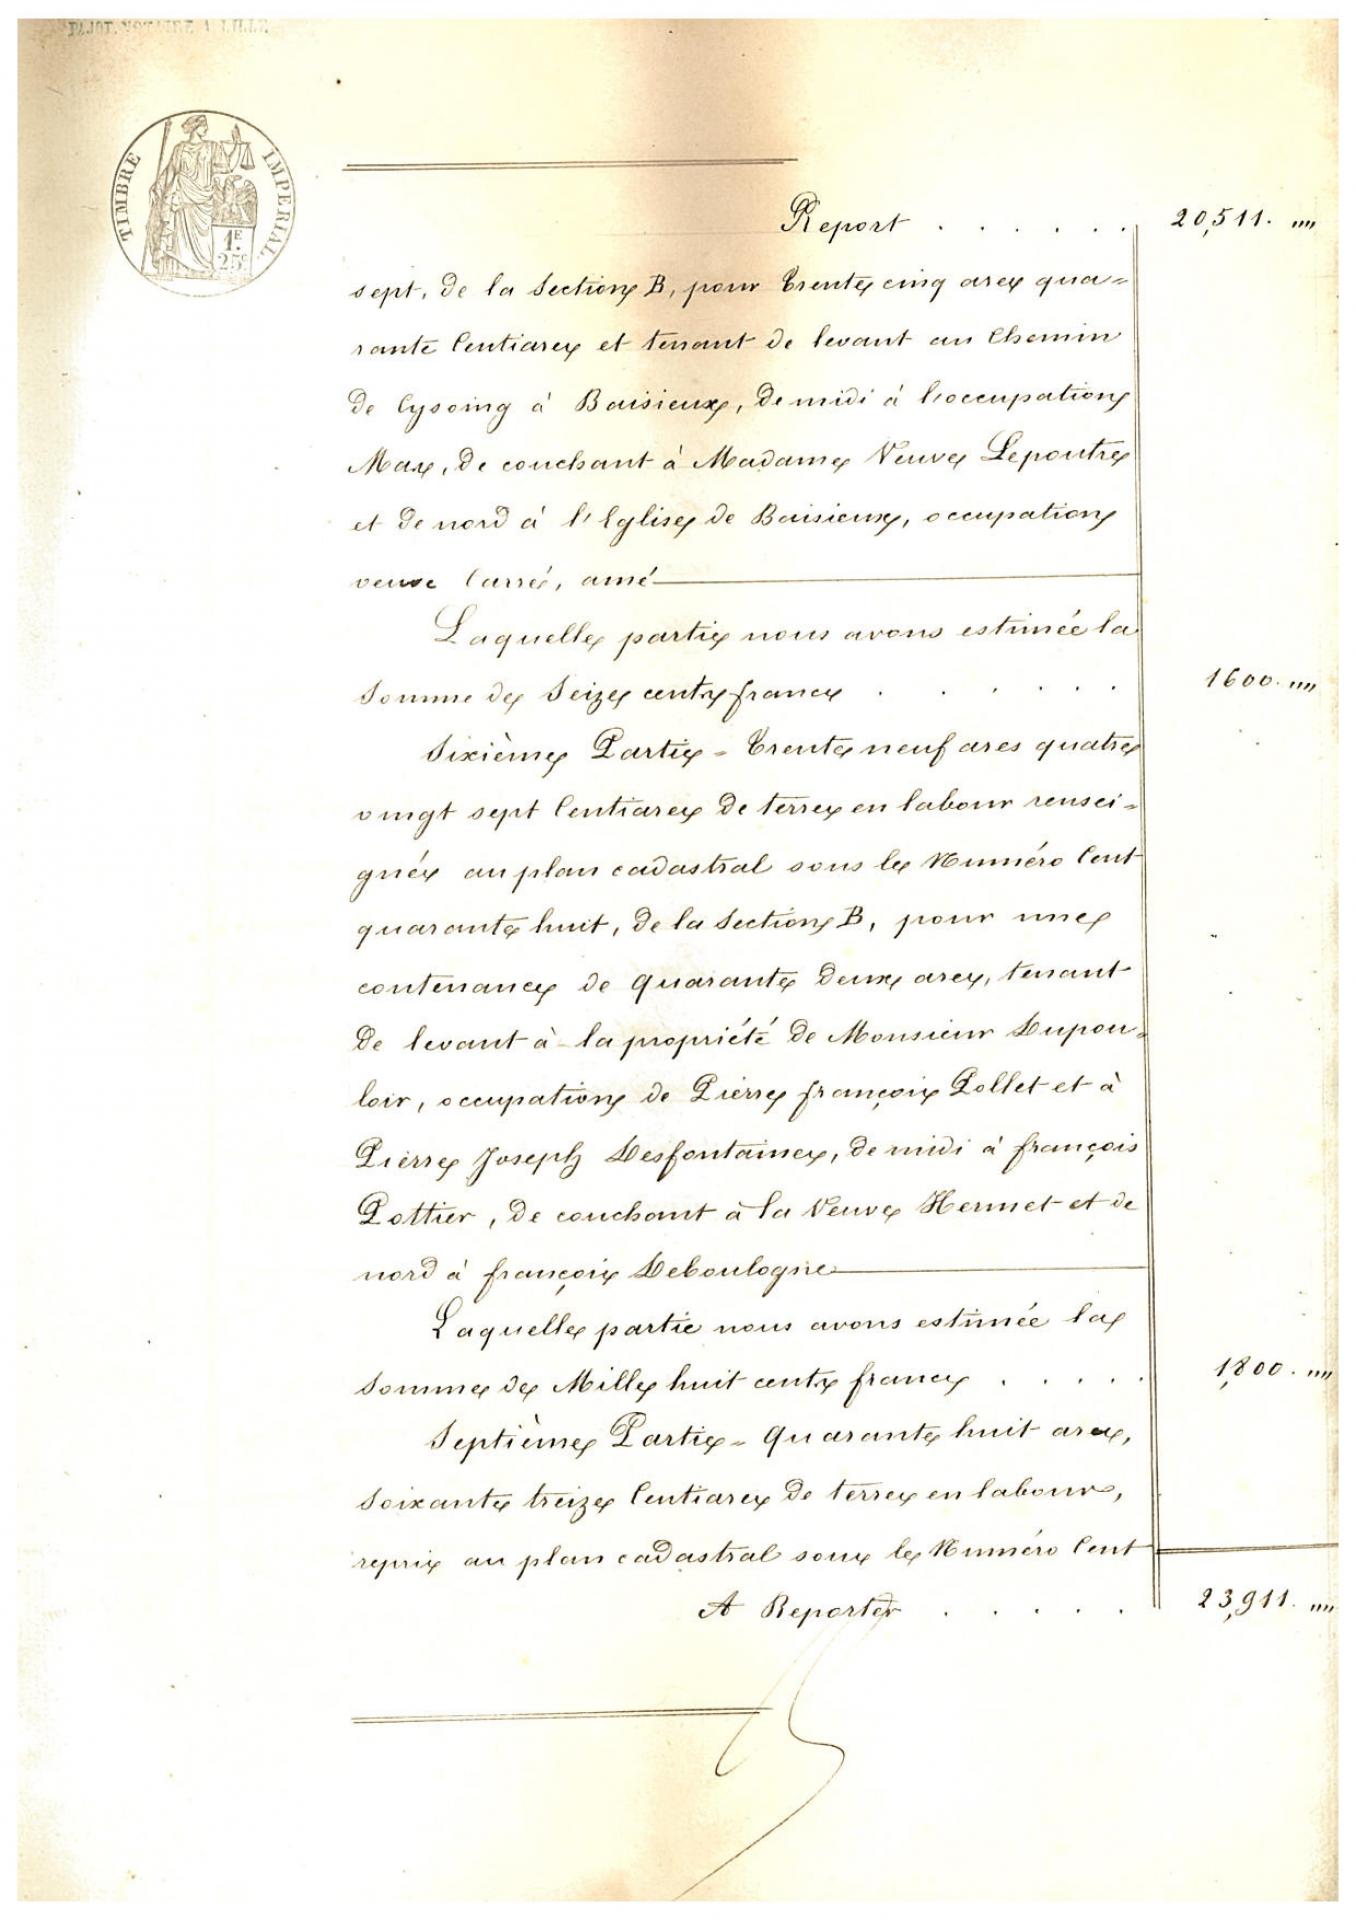 PAJOT. NOTAIRE A LILLE
TIMBRE IMPERIAL.
1F.
25c
Report . . . . . . 20,511. ""
sept, de la Section B, pour trente cinq ares qua=
rante Centiares et tenant de levant au Chemin
de Cysoing à Baisieux, de midi à l'occupation
Max, de couchant à Madame Veuve Lepoutre
et de nord à l'Eglise de Baisieux, occupation
veuve Carré, amé
Laquelle partie nous avons estimée la
Somme de Seize cents francs . . . . . 1600. ""
Sixième Partie = Trente neuf ares quatre
vingt sept Centiares de terre en labour rensei=
gnés au plan cadastral sous le Numéro Cent
quarante huit, de la Section B, pour une
contenance de quarante deux ares, tenant
de levant à la propriété de Monsieur Dupou=
loir, occupation de Pierre françois Pollet et à
Pierre Joseph Desfontaines, de midi à françois
Pottier, de couchant à la Veuve Hermet et de
nord à françois Deboulogne
Laquelle partie nous avons estimée la
Somme de Mille huit cents francs . . . . . 1,800. ""
Septième Partie = Quarante huit ares,
Soixante treize Centiares de terre en labour,
repris au plan cadastral sous le Numéro Cent
A Reporter . . . . . 23,911. ""